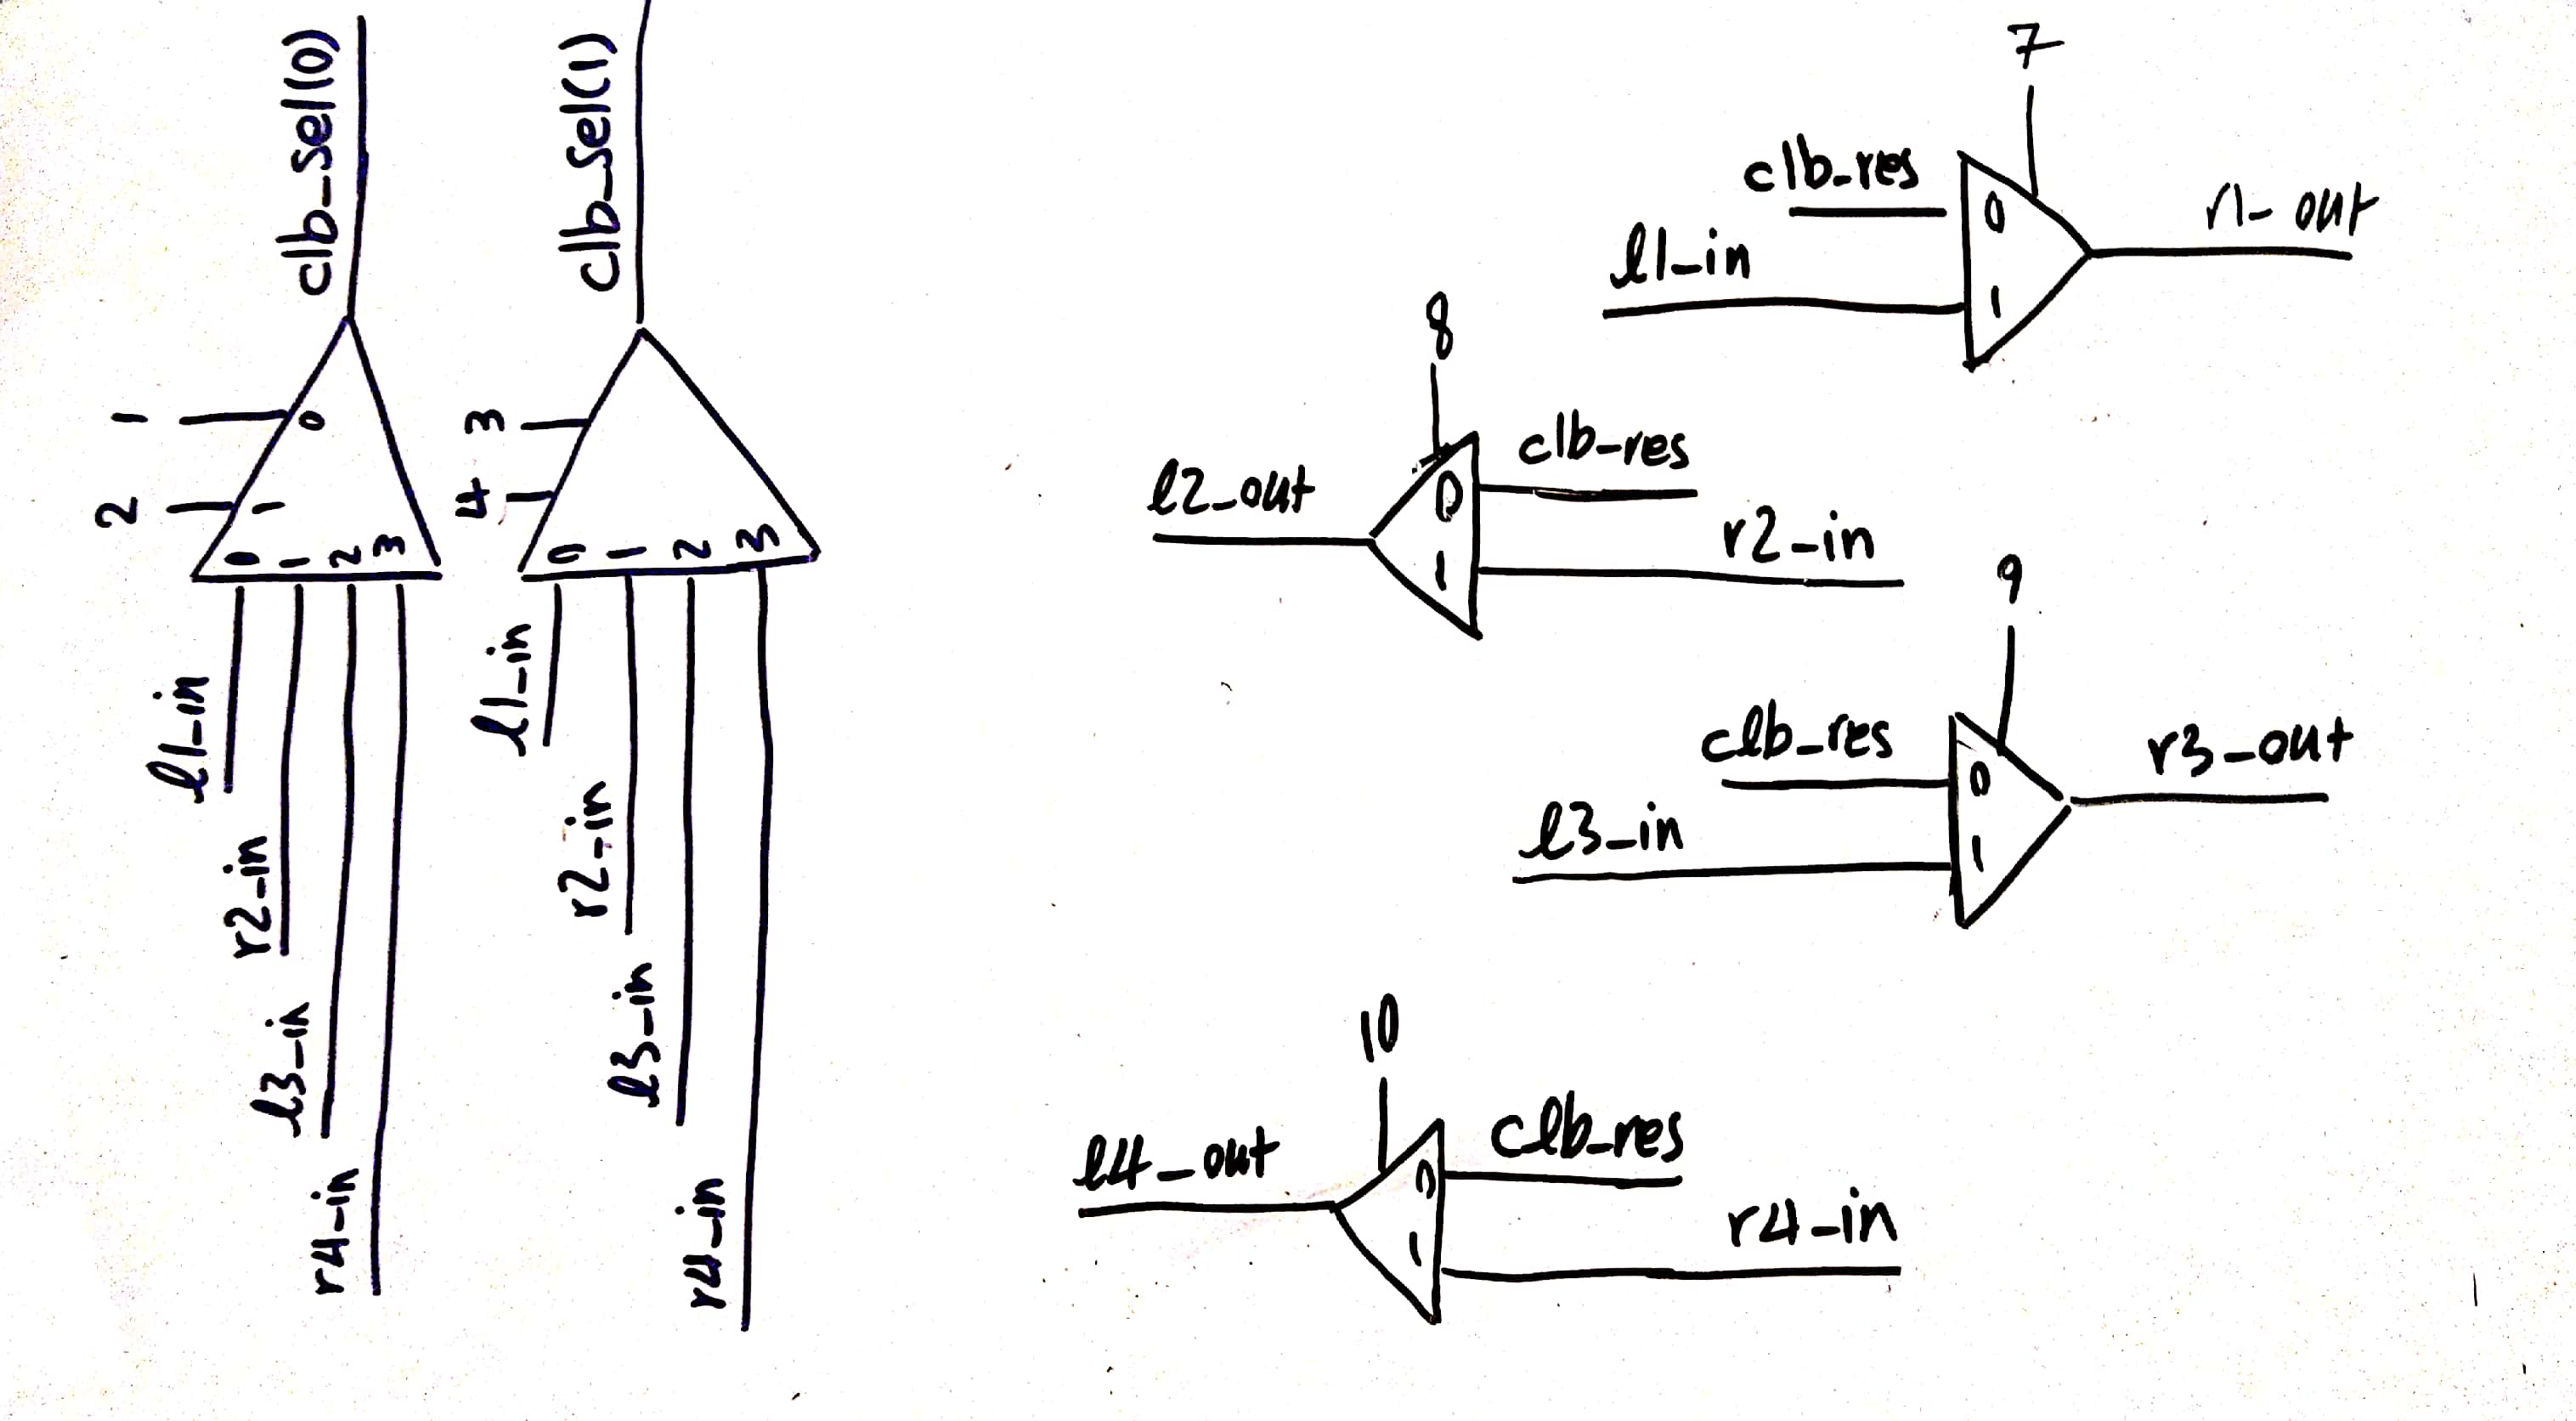 clb_sel(0)
1
0
2
1
0 1 2 3
l1_in
r2_in
l3_in
r4_in
clb_sel(1)
3
4
0 1 2 3
l1_in
r2_in
l3_in
r4_in
7
clb_res
0
l1_in
1
r1_out
8
l2_out
0
clb_res
1
r2_in
9
clb_res
0
l3_in
1
r3_out
10
l4_out
0
clb_res
1
r4_in